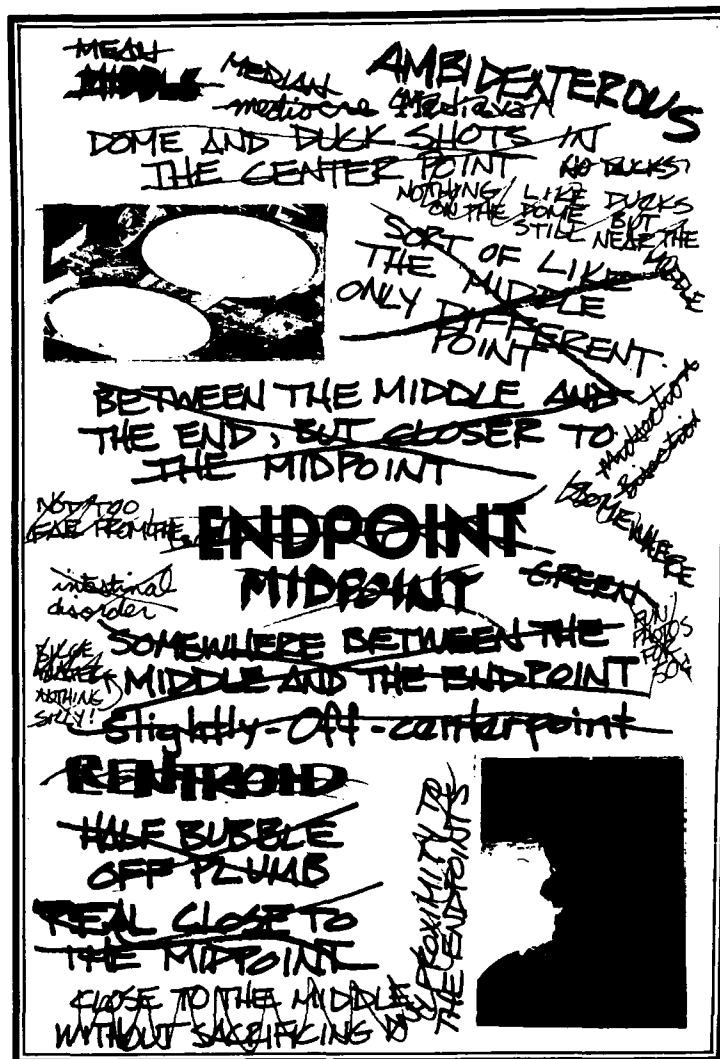 MEAN
MIDDLE
MEDIAN
mediocre
AMBIDEXTEROUS
DOME AND DUCK SHOTS IN
THE CENTER POINT
NO DUCKS!
NOTHING LIKE DUCKS
ON THE DOME BUT
STILL NEAR THE
MIDDLE
SORT OF LIKE
THE MIDDLE
ONLY DIFFERENT.
POINT
BETWEEN THE MIDDLE AND
THE END, BUT CLOSER TO
THE MIDPOINT
midsection
bisection
SOMEWHERE
NOT TOO
FAR FROM THE
ENDPOINT
MIDPOINT
GREEN
intestinal
disorder
SOMEWHERE BETWEEN THE
MIDDLE AND THE ENDPOINT
FUN
PHOTOS
FOR
50¢
NOTHING
SILLY!
Slightly-Off-centerpoint
CENTROID
HALF BUBBLE
OFF PLUMB
REAL CLOSE TO
THE MIDPOINT
CLOSE TO THE MIDDLE
WITHOUT SACRIFICING
PROXIMITY TO
THE ENDPOINTS